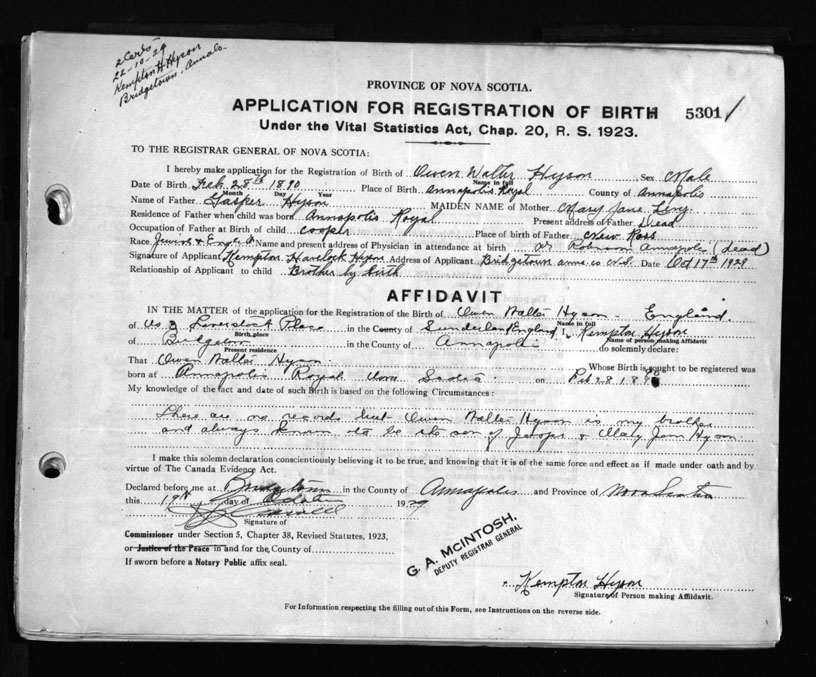 2 Certs
22-10-29
Kempton H Hyson
Bridgetown. Anna Co.
PROVINCE OF NOVA SCOTIA.
APPLICATION FOR REGISTRATION OF BIRTH 5301
Under the Vital Statistics Act, Chap. 20, R. S. 1923.
TO THE REGISTRAR GENERAL OF NOVA SCOTIA:
I hereby make application for the Registration of Birth of Owen Walter Hyson Sex Male
Name in full
Date of Birth Feb 28th 1890 Place of Birth Annapolis Royal County of Annapolis
Month Day Year
Name of Father Hyson MAIDEN NAME of Mother Mary Jane
Residence of Father when child was born Annapolis Royal Present address of Father Dead
Occupation of Father at Birth of child cooper Place of birth of Father New Ross
Race Name and present address of Physician in attendance at birth Dr Robinson Annapolis (dead)
Signature of Applicant Kempton Havelock Hyson Address of Applicant Bridgetown Anna. co N.S. Date Oct 17th 1929
Relationship of Applicant to child Brother by birth
AFFIDAVIT
IN THE MATTER of the application for the Registration of the Birth of Owen Walter Hyson England
Name in full
of No 3 Place in the County of Sunderland England I, Kempton Hyson
Birth place Name of person making Affidavit
of Bridgetown in the County of Annapolis do solemnly declare:
Present residence
That Owen Walter Hyson Whose Birth is sought to be registered was
born at Annapolis Royal Nova Scotia on Feb 28 1890
My knowledge of the fact and date of such Birth is based on the following Circumstances:
There are no records but Owen Walter Hyson is my brother
and always known to be the son of & Mary Jane Hyson
I make this solemn declaration conscientiously believing it to be true, and knowing that it is of the same force and effect as if made under oath and by
virtue of The Canada Evidence Act.
Declared before me at Bridgetown in the County of Annapolis and Province of Nova Scotia
this 19th day of October 1929
Signature of
Commissioner under Section 5, Chapter 38, Revised Statutes, 1923,
or Justice of the Peace in and for the County of
If sworn before a Notary Public affix seal.
G. A. McINTOSH,
DEPUTY REGISTRAR GENERAL
Kempton Hyson
Signature of Person making Affidavit.
For Information respecting the filling out of this Form, see Instructions on the reverse side.